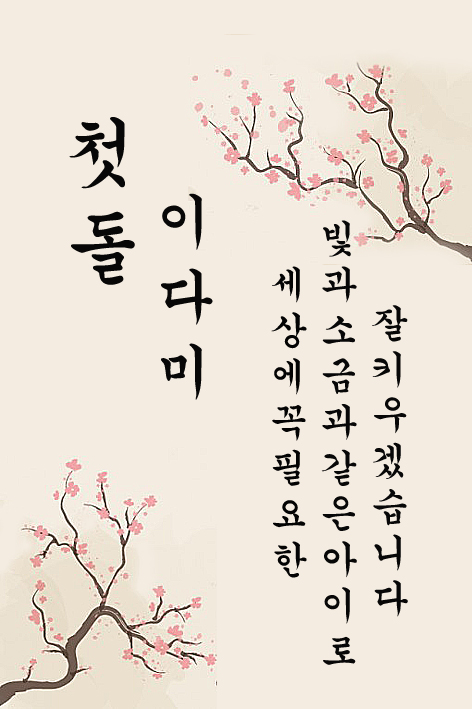 첫돌
이다미
세상에꼭필요한
빛과소금과같은아이로
잘키우겠습니다